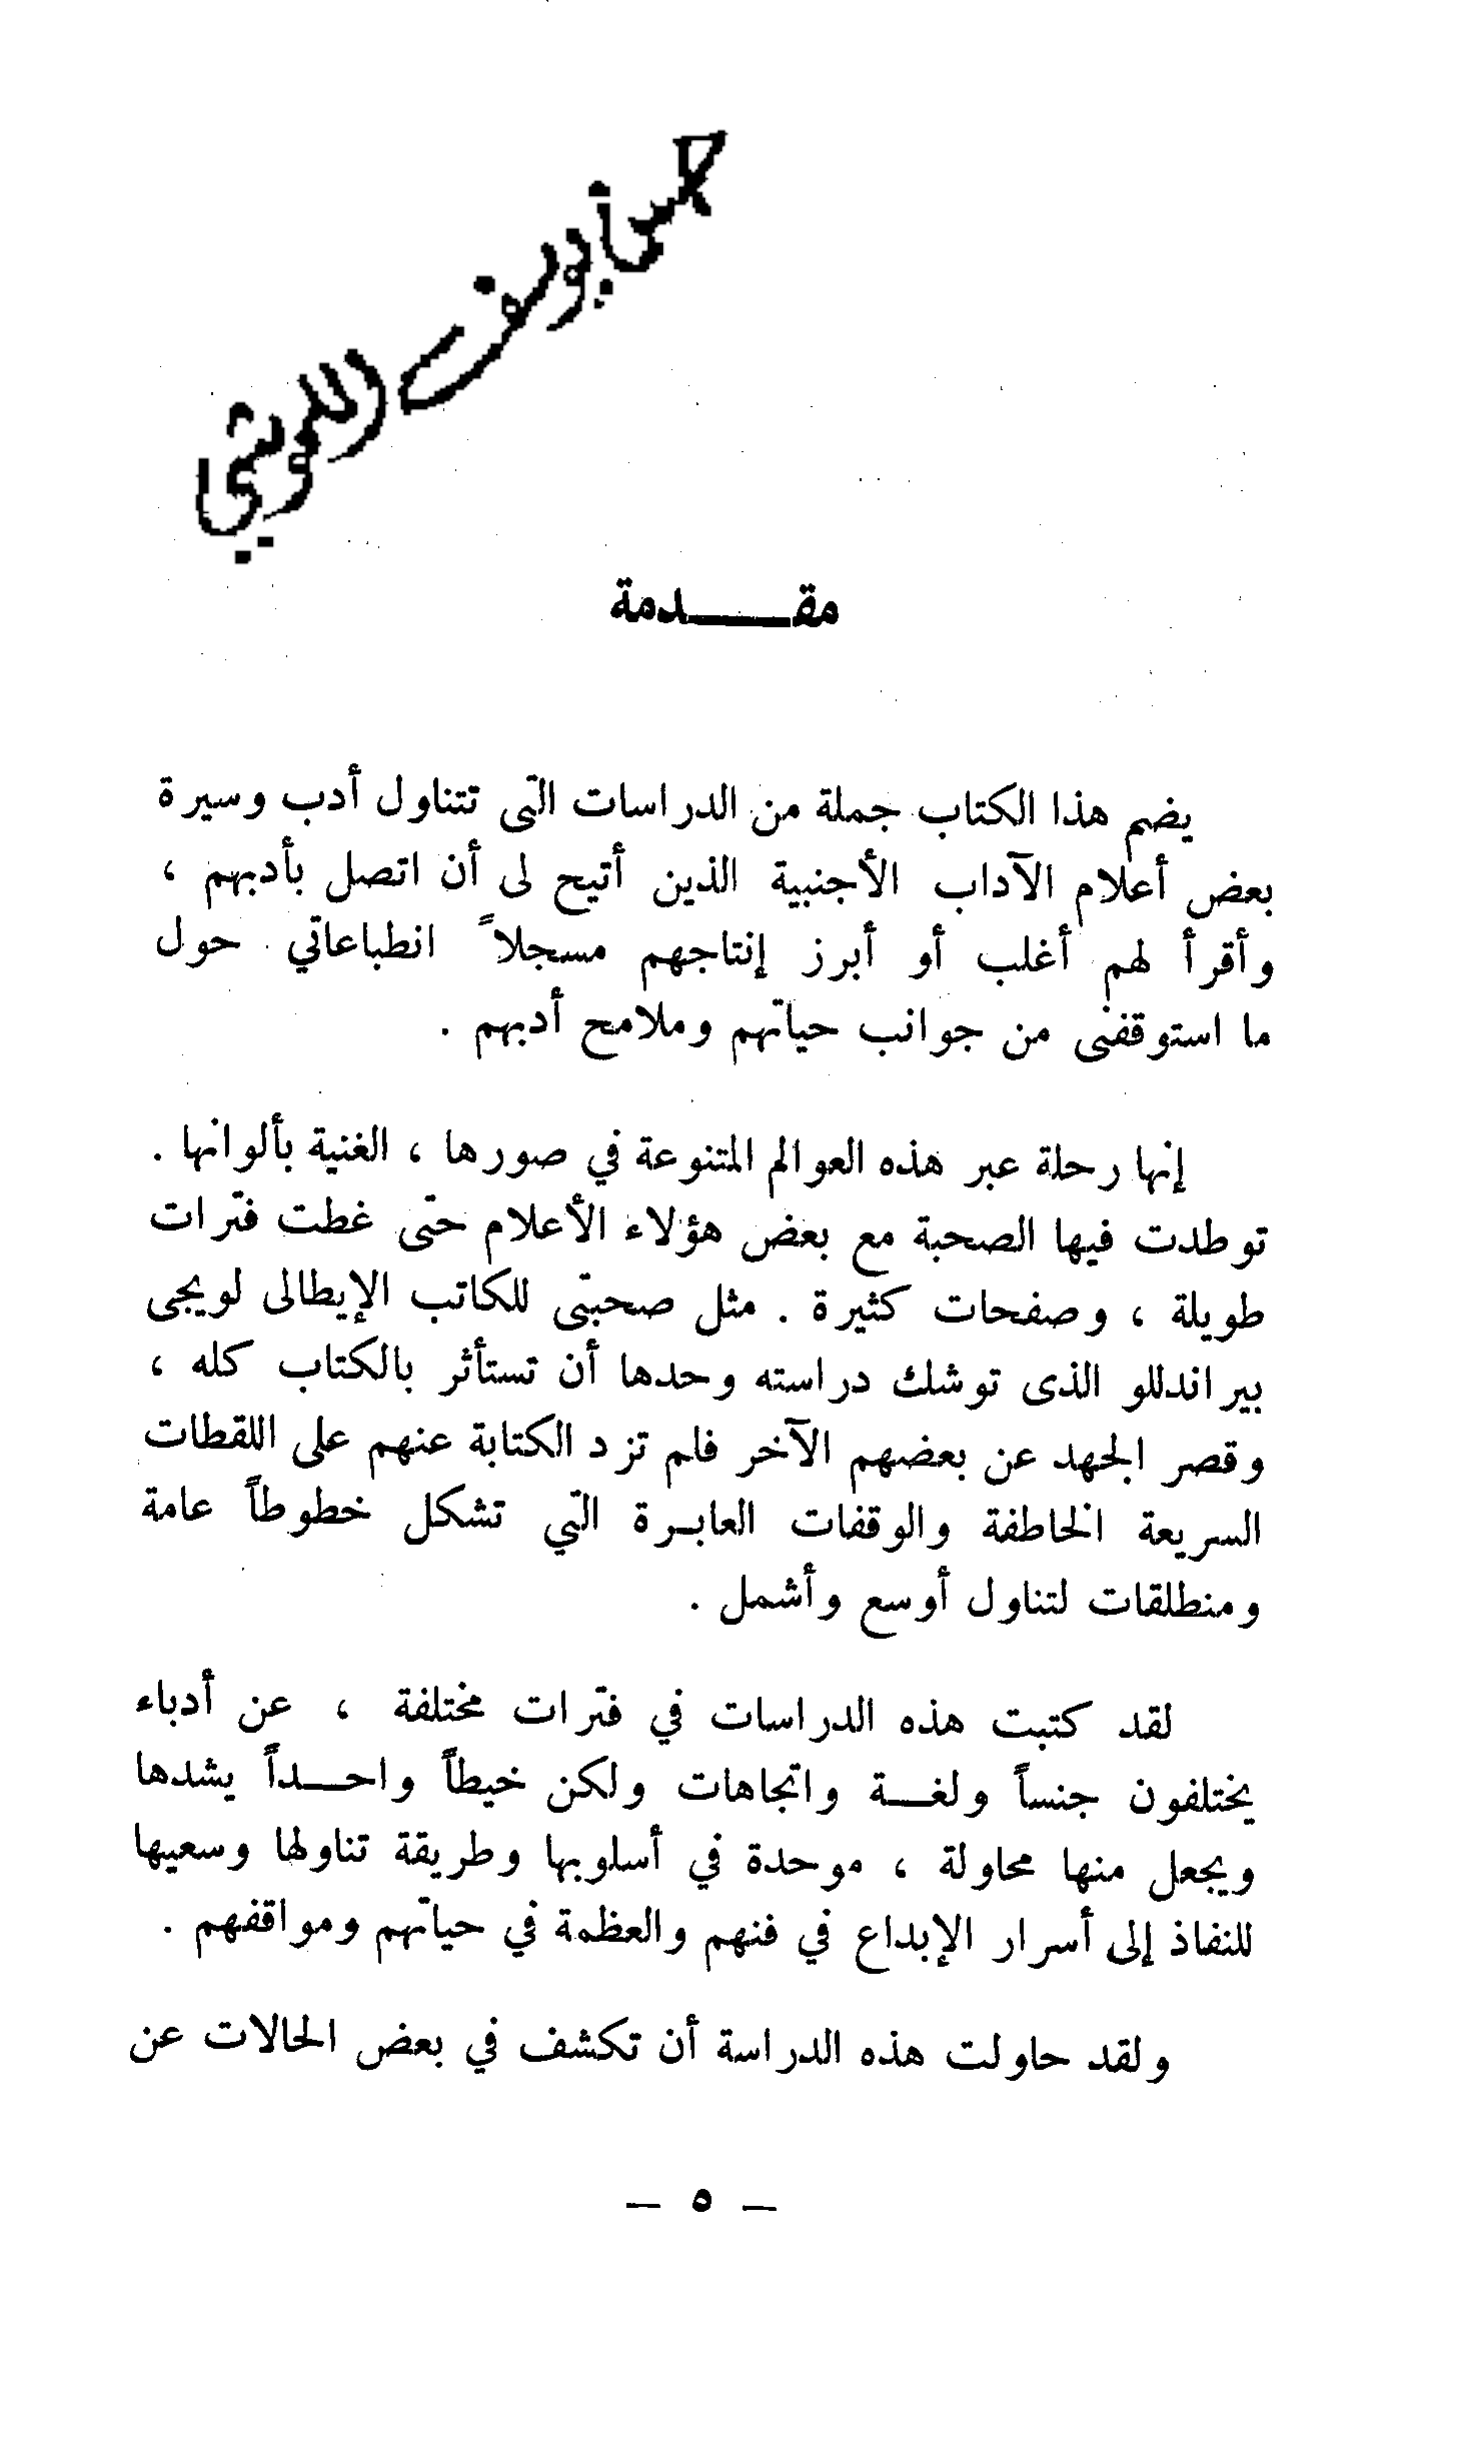 مقـــدمة
يضم هذا الكتاب جملة من الدراسات التى تتناول أدب وسيرة
بعض أعلام الآداب الأجنبية الذين أتيح لى أن اتصل بأدبهم ،
وأقرأ لهم أغلب أو أبرز إنتاجهم مسجلاً انطباعاتي حول
ما استوقفنى من جوانب حياتهم وملامح أدبهم .
إنها رحلة عبر هذه العوالم المتنوعة في صورها ، الغنية بألوانها .
توطدت فيها الصحبة مع بعض هؤلاء الأعلام حتى غطت فترات
طويلة ، وصفحات كثيرة . مثل صحبتى للكاتب الإيطالى لويجى
بيراندللو الذى توشك دراسته وحدها أن تستأثر بالكتاب كله ،
وقصر الجهد عن بعضهم الآخر فلم تزد الكتابة عنهم على اللقطات
السريعة الخاطفة والوقفات العابـرة التي تشكل خطوطاً عامة
ومنطلقات لتناول أوسع وأشمل .
لقد كتبت هذه الدراسات في فترات مختلفة ، عن أدباء
يختلفون جنساً ولغـــة واتجاهات ولكن خيطاً واحـــداً يشدها
ويجعل منها محاولة ، موحدة في أسلوبها وطريقة تناولها وسعيها
للنفاذ إلى أسرار الإبداع في فنهم والعظمة في حياتهم ومواقفهم .
ولقد حاولت هذه الدراسة أن تكشف في بعض الحالات عن
— ٥ —